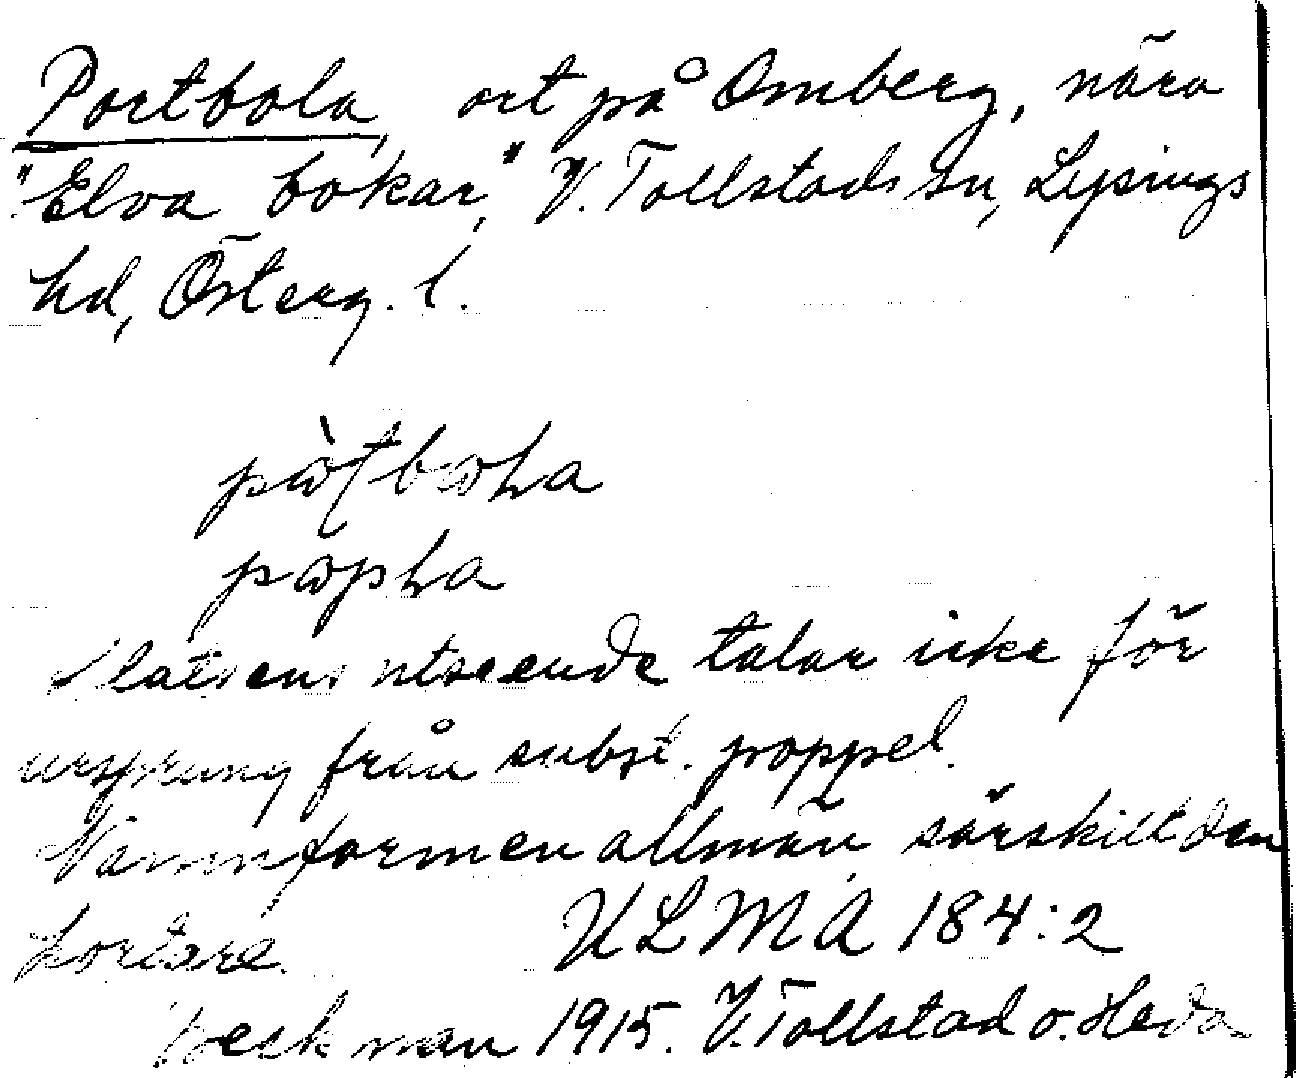 Portbola, ort på Omberg, nära
"Elva bokar," V. Tollstads sn, Lysings
hd, Österg. l.
Platsens utseende talar icke för
ursprung från subst. poppel.
Namnformen allmän, särskilt den
kortare. ULMA 184:2
Beckman 1915. V. Tollstad o. Heda